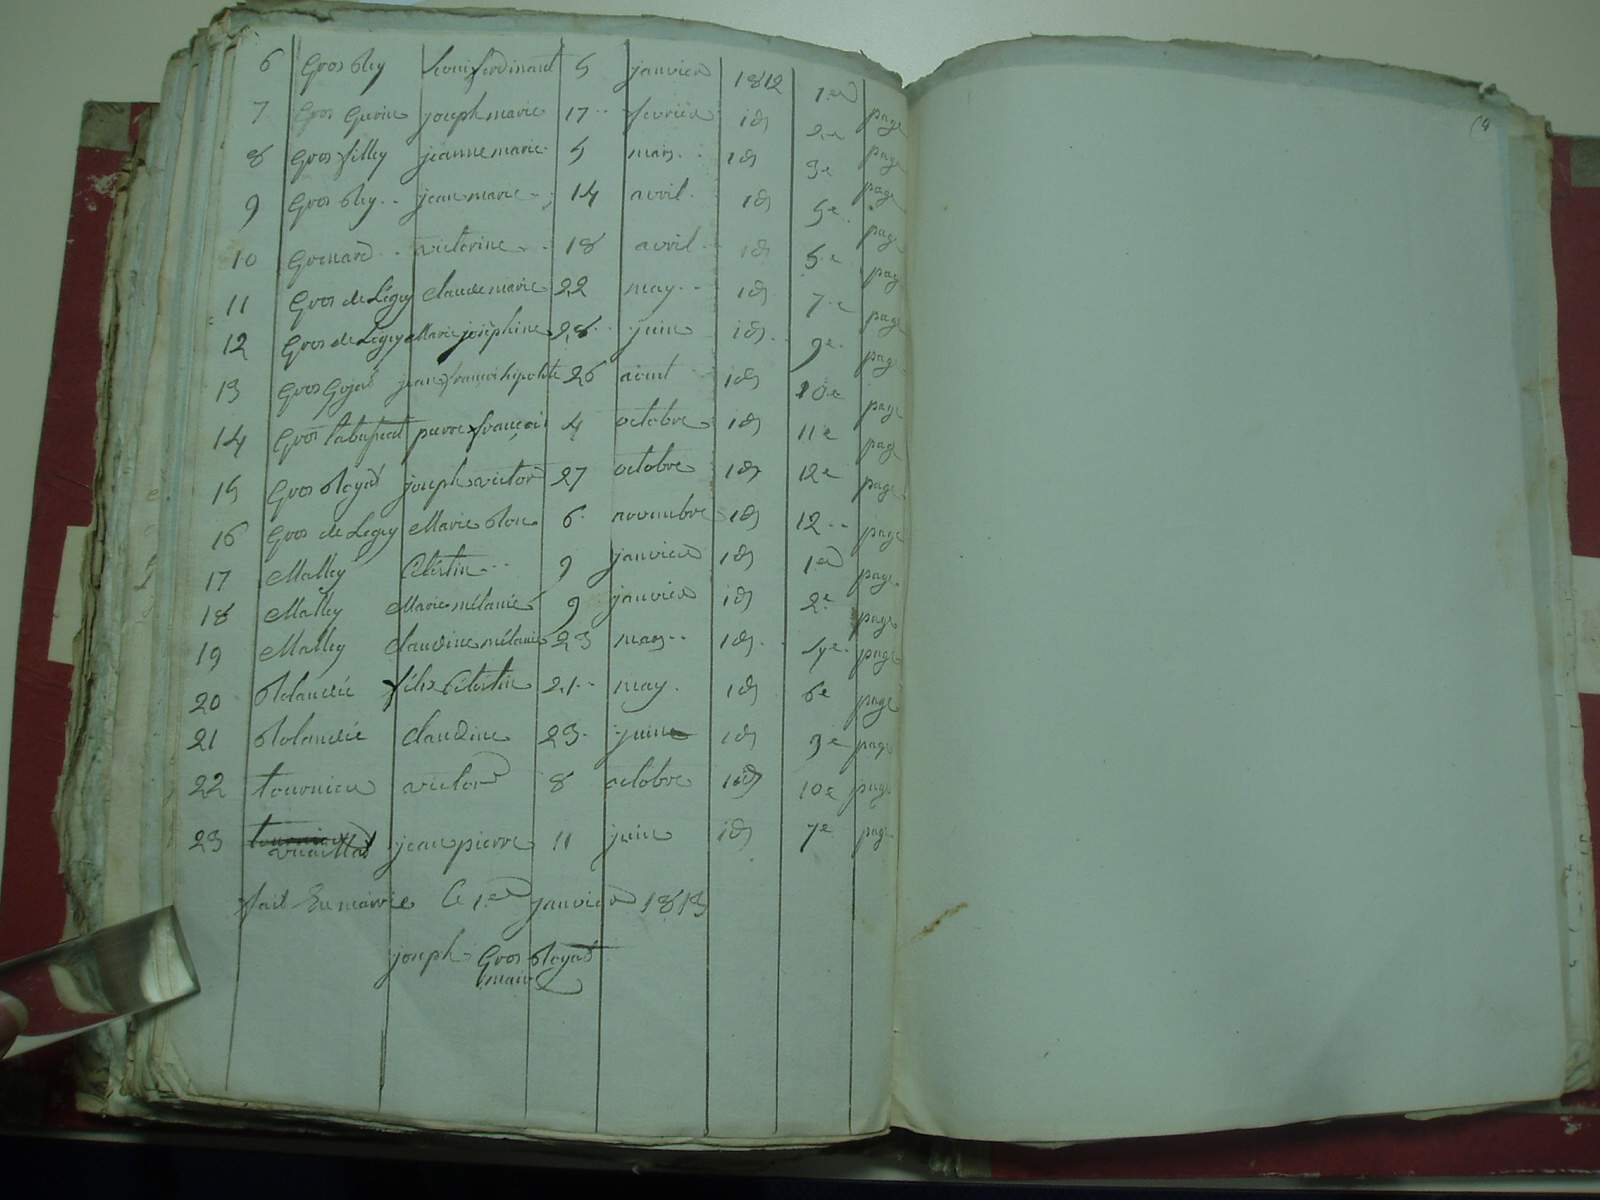 6 Gros Rey Louis ferdinant 5 janvier 1812 1.er page
7 Gros Gurin joseph marie 17 fevrier id 2.e page
8 Gros filley jeanne marie 5 mars id 3e page
9 Gros Rey jean marie 14 avril id 5e page
10 Grenard victorine 18 avril id 5e page
11 Gros de Leguy Claude marie 22 may id 7e page
12 Gros de Leguy Marie joséphine 28 juin id 9e page
13 Gros Gojat jean francois hipolite 26 aout id 10e page
14 Gros pierre françois 4 octobre id 11e page
15 Gros Royat joseph victor 27 octobre id 12e page
16 Gros de Leguy Marie Rose 6 novembre id 12 page
17 Malley Célestin 9 janvier id 1er page
18 Malley Marie mélanie 9 janvier id 2e page
19 Malley Claudine mélanie 23 mars id 4e page
20 Rolandé félix Célestin 21 may id 6e page
21 Rolandé Claudine 23 juin id 9e page
22 tournier victor 8 octobre id 10e page
23 vuaillat jean pierre 11 juin id 7e page
fait En mairie Ce 1.er janvier 1813
joseph Gros Royat
maire